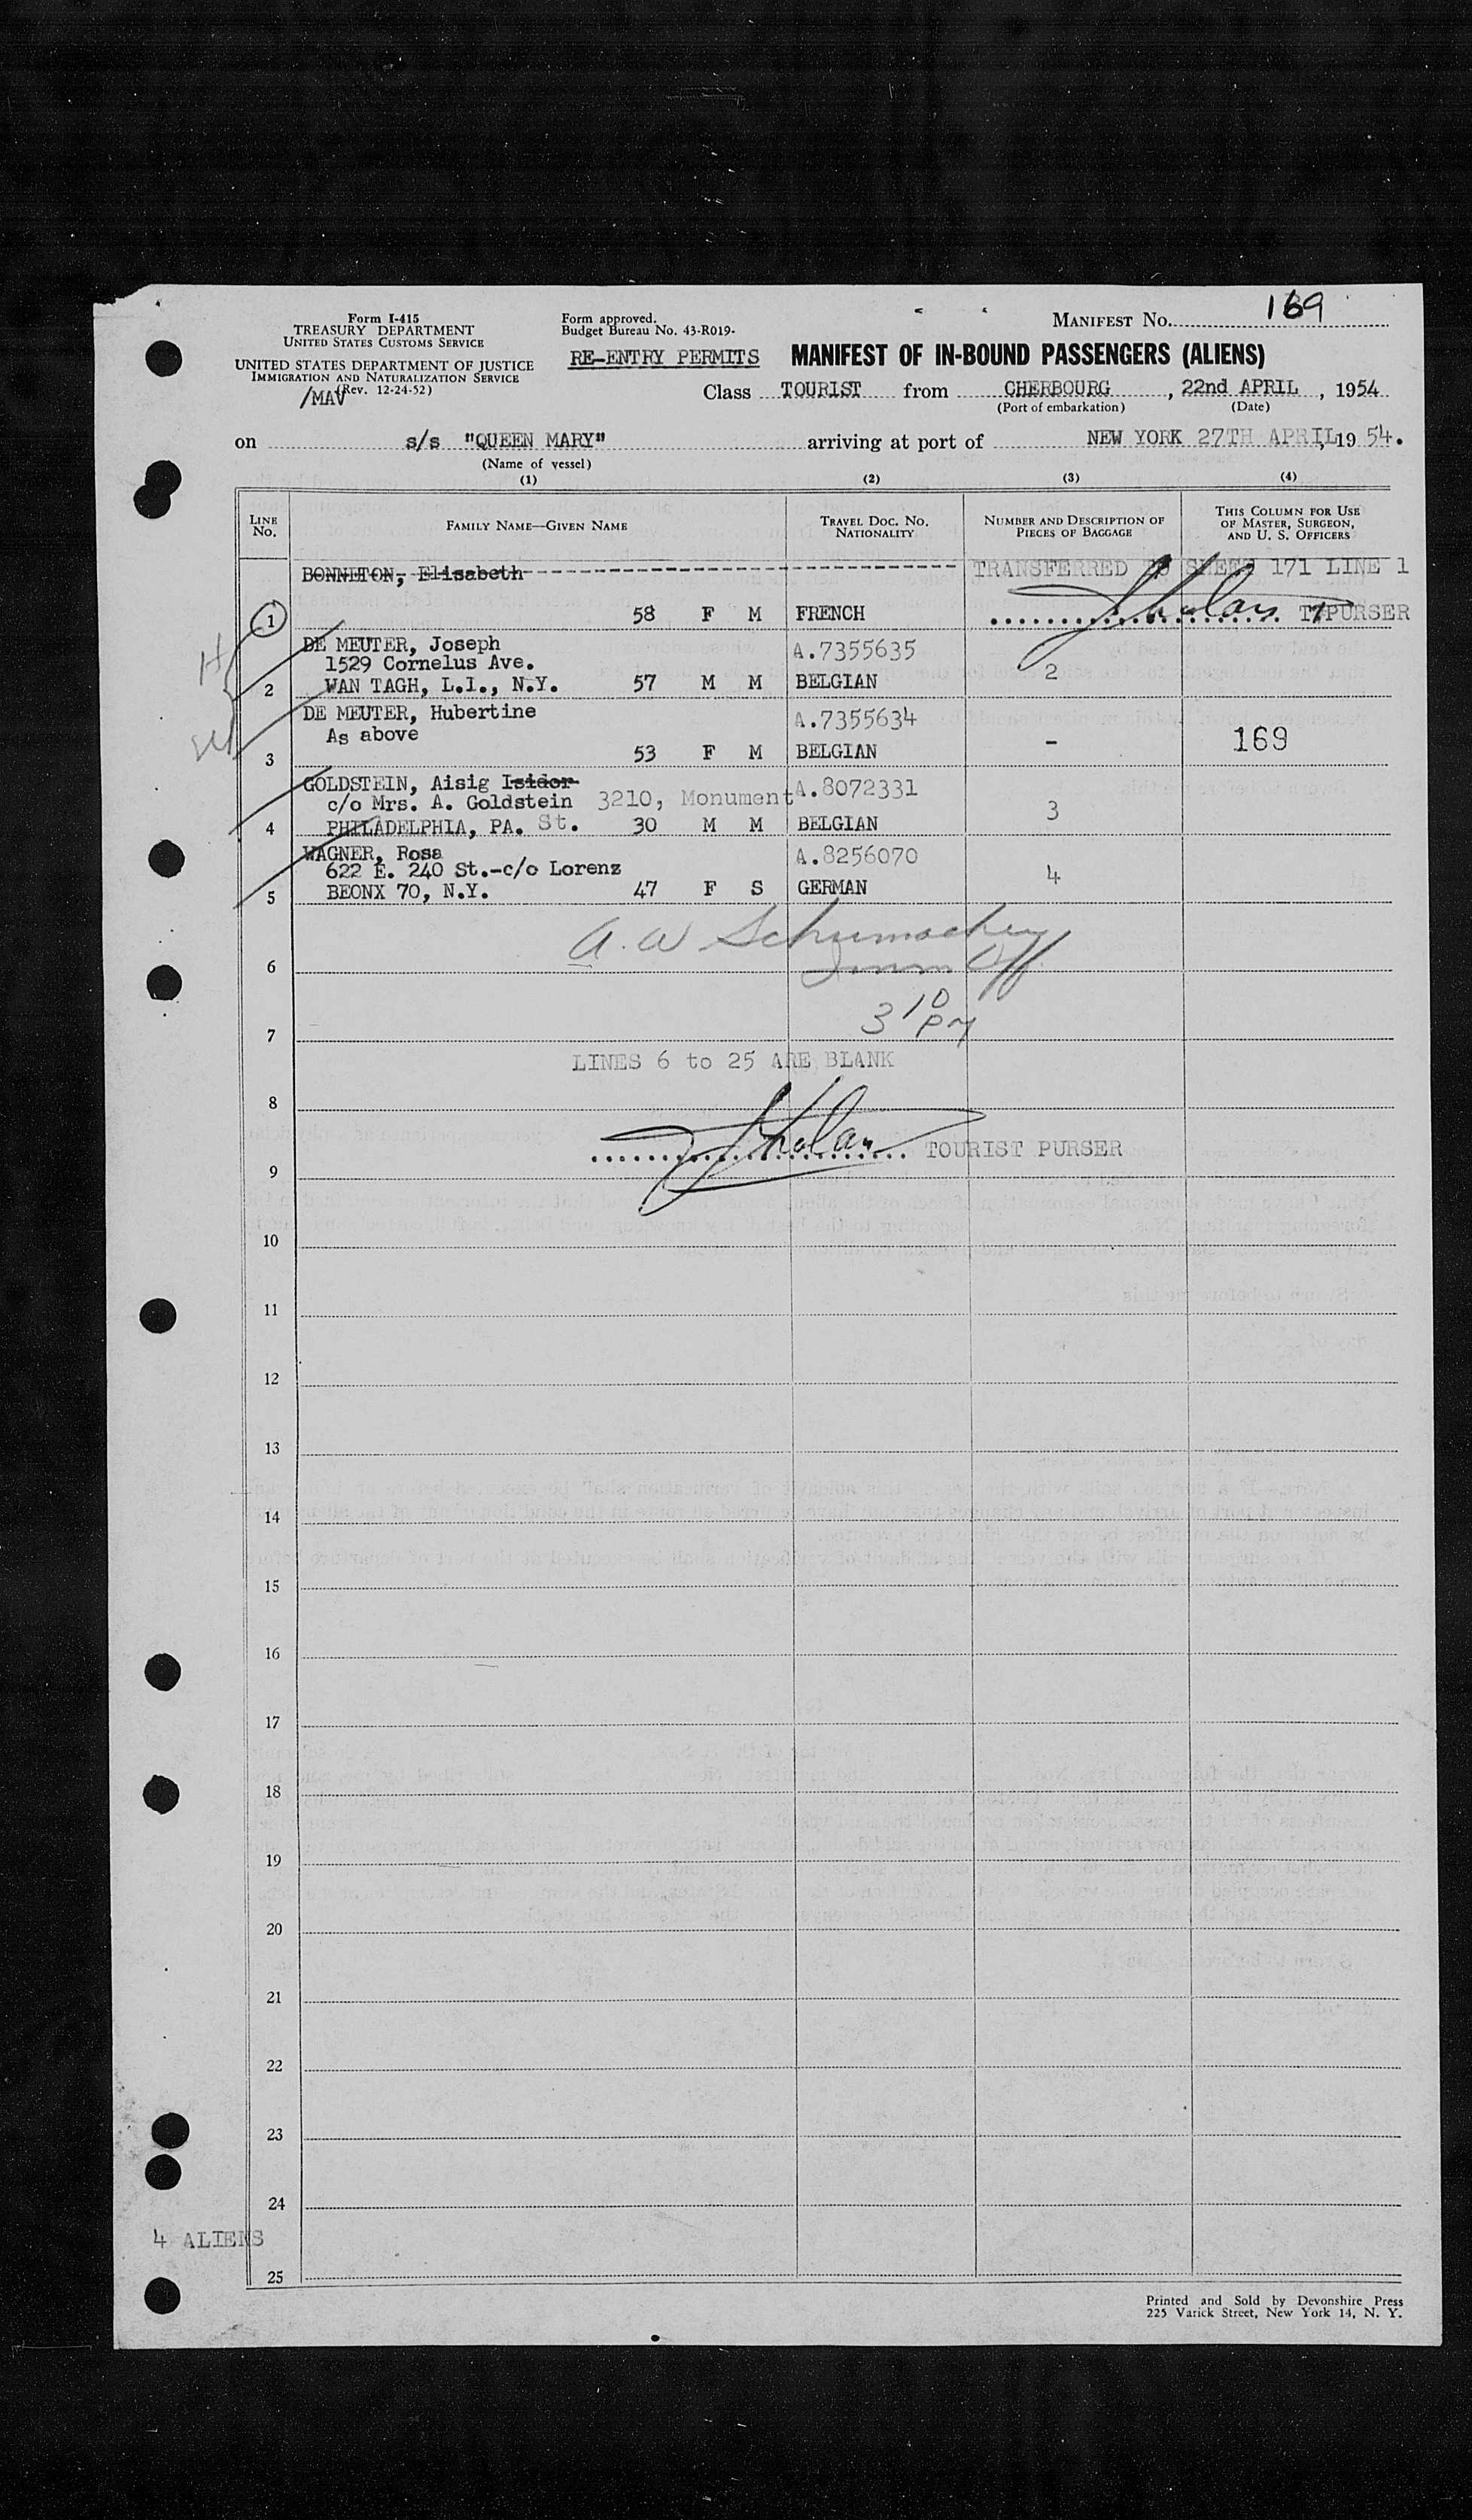 Form I-415
TREASURY DEPARTMENT
UNITED STATES CUSTOMS SERVICE
UNITED STATES DEPARTMENT OF JUSTICE
IMMIGRATION AND NATURALIZATION SERVICE
(Rev. 12-24-52)
/MAV
Form approved.
Budget Bureau No. 43-R019-
MANIFEST No. 169
RE-ENTRY PERMITS MANIFEST OF IN-BOUND PASSENGERS (ALIENS)
Class TOURIST from CHERBOURG, 22nd APRIL, 1954
(Port of embarkation) (Date)
on s/s "QUEEN MARY" arriving at port of NEW YORK 27TH APRIL, 1954.
(Name of vessel)
(1) (2) (3) (4)
LINE No. FAMILY NAME—GIVEN NAME TRAVEL DOC. No. NATIONALITY NUMBER AND DESCRIPTION OF PIECES OF BAGGAGE THIS COLUMN FOR USE OF MASTER, SURGEON, AND U. S. OFFICERS
BONNETON, Elisabeth TRANSFERRED TO SHEET 171 LINE 1
1 58 F M FRENCH T/PURSER
DE MEUTER, Joseph A.7355635
1529 Cornelus Ave.
2 WAN TAGH, L.I., N.Y. 57 M M BELGIAN 2
DE MEUTER, Hubertine A.7355634
As above
3 53 F M BELGIAN - 169
GOLDSTEIN, Aisig Isidor A.8072331
c/o Mrs. A. Goldstein 3210, Monument
4 PHILADELPHIA, PA. St. 30 M M BELGIAN 3
WAGNER, Rosa A.8256070
622 E. 240 St.-c/o Lorenz
5 BEONX 70, N.Y. 47 F S GERMAN 4
A. W Schumacher
6 Imm Off.
3 10 PM
7
LINES 6 to 25 ARE BLANK
8
TOURIST PURSER
9
10
11
12
13
14
15
16
17
18
19
20
21
22
23
24
4 ALIENS
25
Printed and Sold by Devonshire Press
225 Varick Street, New York 14, N. Y.